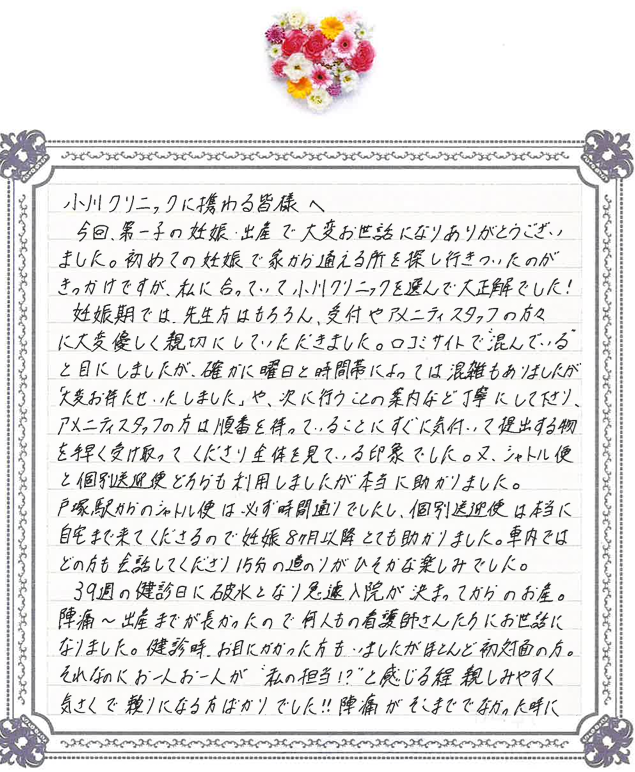 小川クリニックに携わる皆様へ
今回、第一子の妊娠・出産で大変お世話になりありがとうござい
ました。初めての妊娠で家から通える所を探し行きついたのが
きっかけですが、私に合っていて小川クリニックを選んで大正解でした!
妊娠期では、先生方はもちろん、受付やアメニティスタッフの方々
に大変優しく親切にしていただきました。口コミサイトで"混んでいる"
と目にしましたが、確かに曜日と時間帯によっては混雑もありましたが
「大変お待たせいたしました」や、次に行うことの案内など丁寧にして下さり、
アメニティスタッフの方は順番を待っていることにすぐに気付いて提出する物
を手早く受け取ってくださり全体を見ている印象でした。又、シャトル便
と個別送迎便どちらも利用しましたが本当に助かりました。
戸塚駅からのシャトル便は必ず時間通りでしたし、個別送迎便は本当に
自宅まで来てくださるので妊娠8ヶ月以降とても助かりました。車内では
どの方も会話してくださり15分の道のりがひそかな楽しみでした。
39週の健診日に破水となり急遽入院が決まってからのお産。
陣痛〜出産までが長かったので何人もの看護師さんたちにお世話に
なりました。健診時、お目にかかった方もいましたがほとんど初対面の方。
それなのにお一人お一人が"私の担当!?"と感じる程親しみやすく
気さくで頼りになる方ばかりでした!!陣痛がそこまででなかった時に